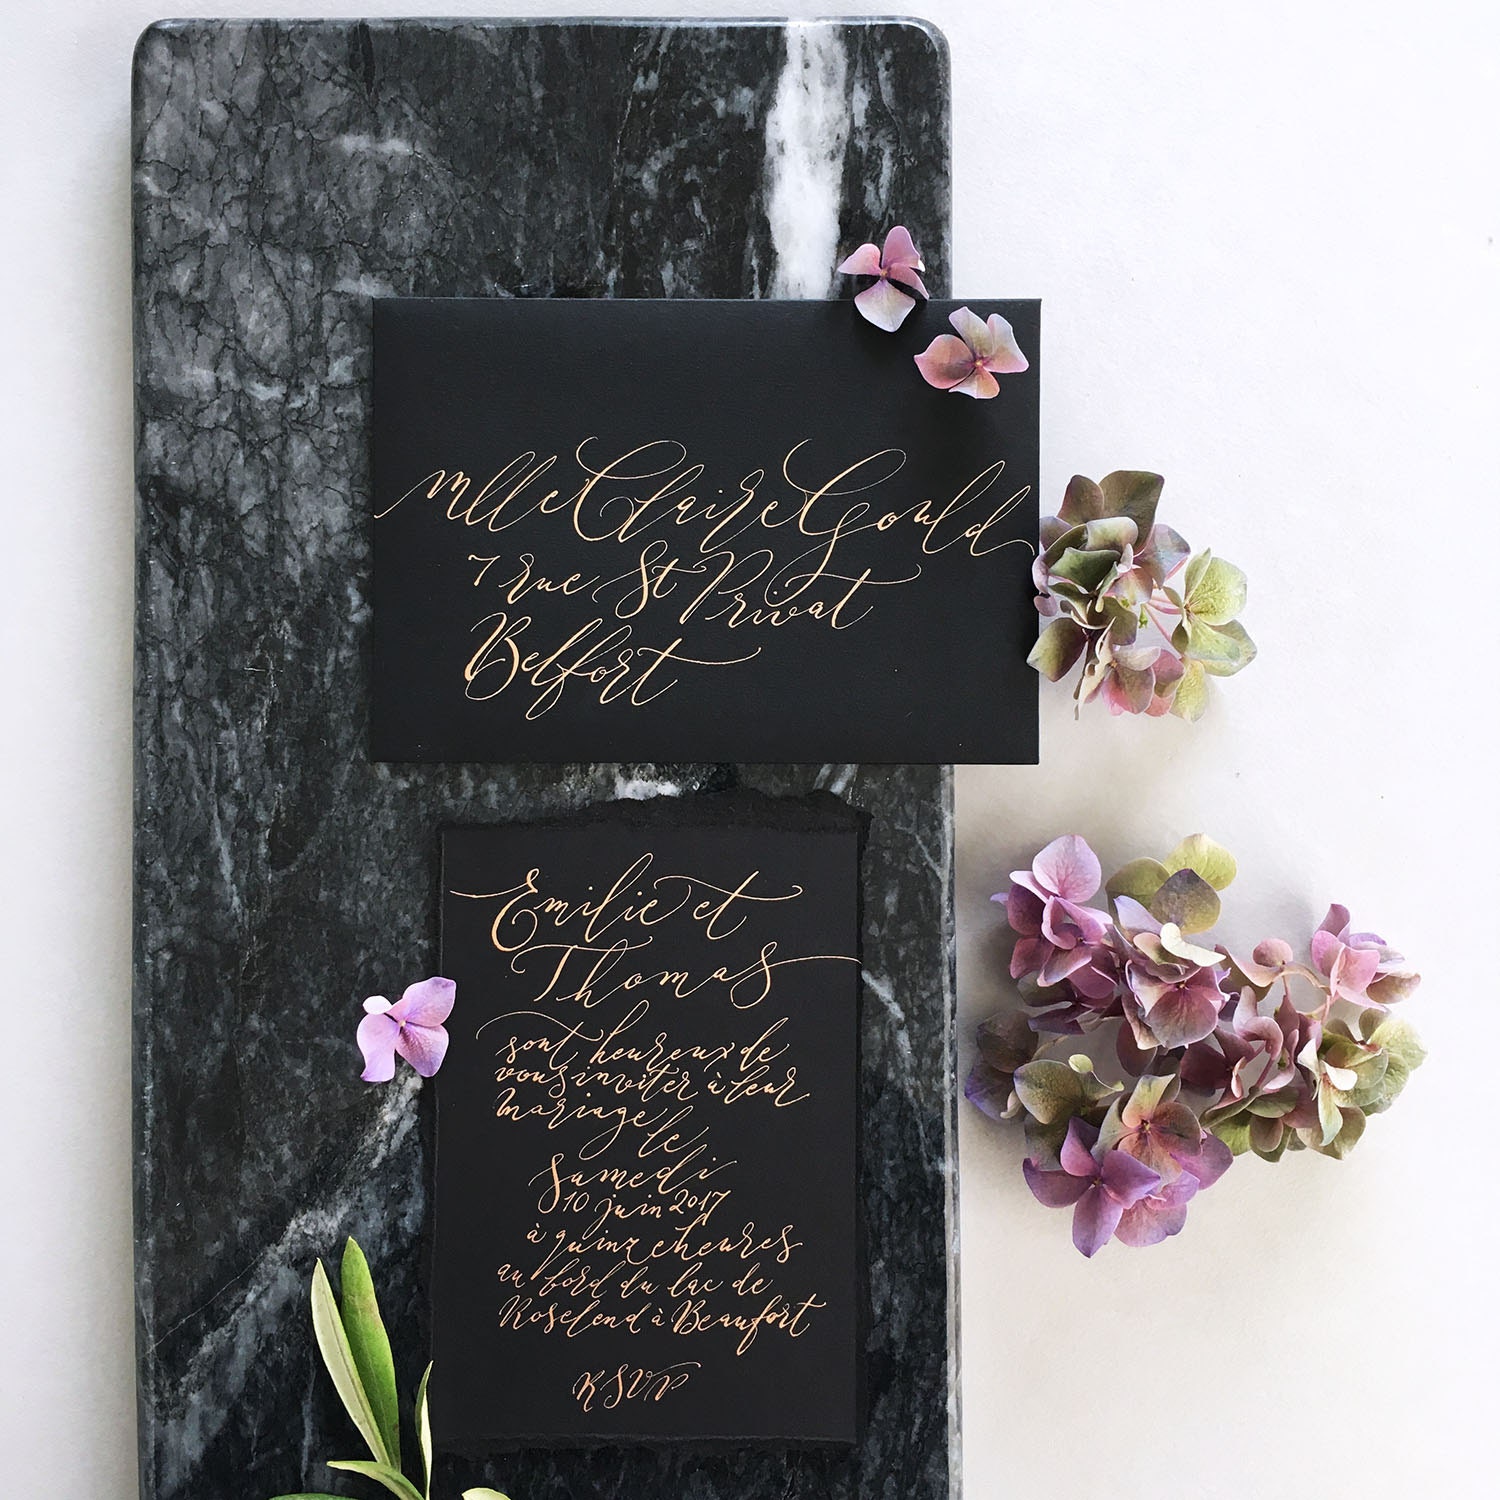 Mlle Claire Gould
7 rue St Privat
Belfort
Emilie et
Thomas
sont heureux de
vous inviter à leur
mariage
le
samedi
10 juin 2017
à quinze heures
au bord du lac de
Roselend à Beaufort
RSVP